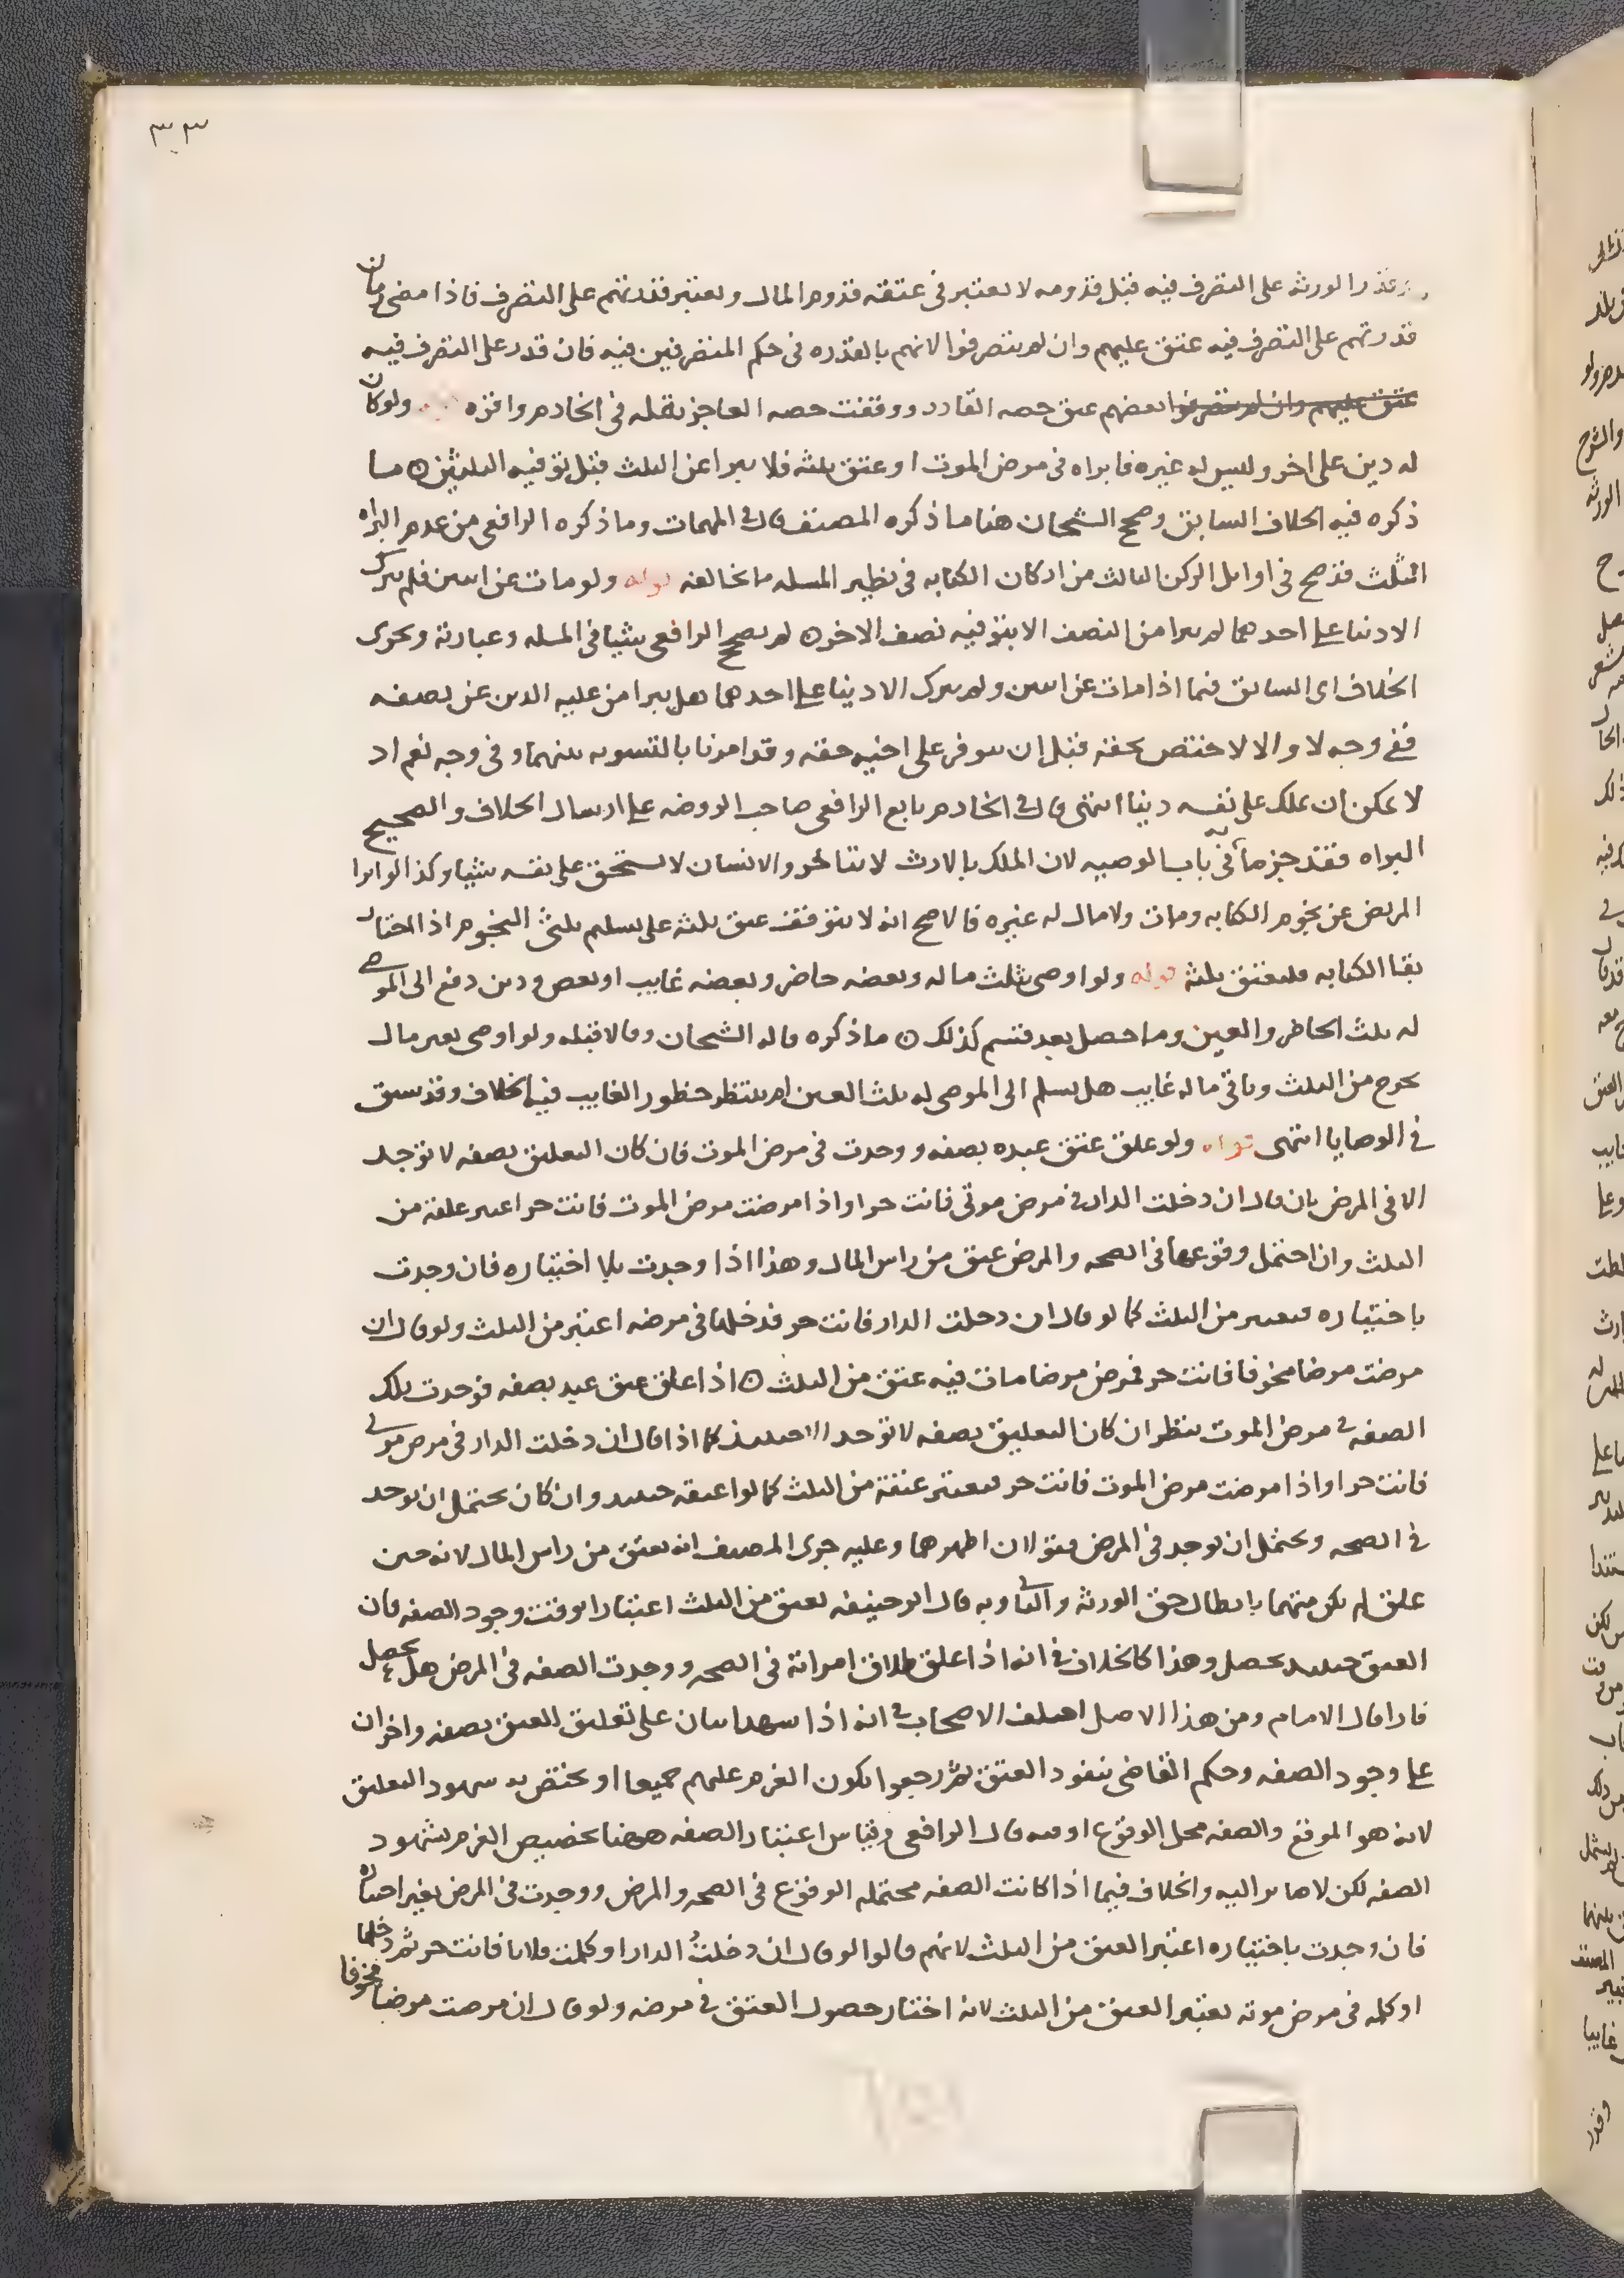 ٣٣
وقدر الورثه على التصرف فيه قبل قدومه لا يعتبر في عتقه قدوم المال ويعتبر قدرتهم على التصرف فاذا مضى زمان
قدرتهم على التصرف فيه عتق عليهم وان لم يتصرفوا لانهم بالقدره في حكم المتصرفين فيه فان قدر على التصرف فيه
عتق عليهم وان لم يتصرفوا بعضهم عتق حصه القادر ووقفت حصه العاجز نقله في الخادم واقره ولو كان
له دين على اخر وليس له غيره فابراه في مرض الموت او عتق ثلثه فلا يبرا عن الثلث قبل توفيه الثلثين ما
ذكره فيه الخلاف السابق وصحح الشيخان هنا ما ذكره المصنف قال في المهمات وما ذكره الرافعي من عدم البراه
الثلث قد صحح في اوايل الركن الثالث من اركان الكتابه في نظير المسله ما يخالفه قوله ولو مات عن ابنين فلم يترك
الا دينا على احدهما لم يبرا من النصف الا بتوفيه نصف الاخر لم يصحح الرافعي شيا في المسله وعبارته ويجرى
الخلاف اي السابق فيما اذا مات عن ابنين ولم يترك الا دينا على احدهما هل يبرا من عليه الدين عن نصفه
ففي وجه لا والا لاختص بحقه قبل ان يتوفر على اخيه حقه وقد امرنا بالتسويه بينهما وفي وجه نعم اذ
لا يمكن ان يملك على نفسه دينا انتهى قال في الخادم تابع الرافعي صاحب الروضه على ارسال الخلاف والصحيح
البراه فقد جزما به في باب الوصيه لان الملك بالارث لا يتاخر والانسان لا يستحق على نفسه شيا وكذا لو ابرا
المريض عن نجوم الكتابه ومات ولا مال له غيره فالاصح انه لا يتوقف عتق ثلثه على تسليم ثلثي النجوم اذ المختار
بقا الكتابه فليعتق ثلثه قوله ولو اوصى بثلث ماله وبعضه حاضر وبعضه غايب او بعض ودين دفع الى الموصى
له ثلث الحاضر والعين وما حصل بعد قسم كذلك ما ذكره قاله الشيخان وقالا قبله ولو اوصى بعين مال
يخرج من الثلث وباقي ماله غايب هل يسلم الى الموصى له ثلث العين ام ينتظر حظور الغايب فيه الخلاف وقد سبق
في الوصايا انتهى قوله ولو علق عتق عبده بصفه ووجدت في مرض الموت فان كان التعليق بصفه لا توجد
الا في المرض بان قال ان دخلت الدار في مرض موتي فانت حر او اذا مرضت مرض الموت فانت حر اعتبر عتقه من
الثلث وان احتمل وقوعها في الصحه والمرض عتق من راس المال وهذا اذا وجدت بلا اختياره فان وجدت
باختياره فيعتبر من الثلث كما لو قال ان دخلت الدار فانت حر فدخلها في مرضه اعتبر من الثلث ولو قال ان
مرضت مرضا مخوفا فانت حر فمرض مرضا مات فيه عتق من الثلث اذا علق عتق عبد بصفه فوجدت تلك
الصفه في مرض الموت ينظر ان كان التعليق بصفه لا توجد الا حينيذ كما اذا قال ان دخلت الدار في مرض موتي
فانت حر او اذا مرضت مرض الموت فانت حر فيعتبر عتقه من الثلث كما لو اعتقه حينيذ وان كان يحتمل ان يوجد
في الصحه ويحتمل ان يوجد في المرض فقولان اظهرهما وعليه جرى المصنف انه يعتق من راس المال لانه حين
علق لم يكن متهما بابطال حق الورثه والثاني وبه قال ابو حنيفه يعتق من الثلث اعتبارا بوقت وجود الصفه فان
العتق حينيذ يحصل وهذا كالخلاف في انه اذا علق طلاق امراته في الصحه ووجدت الصفه في المرض هل يحصل
فارا قال الامام ومن هذا الاصل اختلف الاصحاب في انه اذا شهد اثنان على تعليق العتق بصفه واخران
على وجود الصفه وحكم القاضي بنفود العتق ثم رجعوا يكون الغرم عليهم جميعا او يختص به شهود التعليق
لانه هو الموقع والصفه محل الوقوع او فيه قال الرافعي وقياس اعتبار الصفه ههنا تخصيص الغرم بشهود
الصفه لكن لا صاير اليه والخلاف فيما اذا كانت الصفه محتمله الوقوع في الصحه والمرض ووجدت في المرض بغير اختياره
فان وجدت باختياره اعتبر العتق من الثلث لانهم قالوا لو قال ان دخلتُ الدار او كلمت فلانا فانت حر ثم دخلها
او كلمه في مرض موته يعتبر العتق من الثلث لانه اختار حصول العتق في مرضه ولو قال ان مرضت مرضا مخوفا